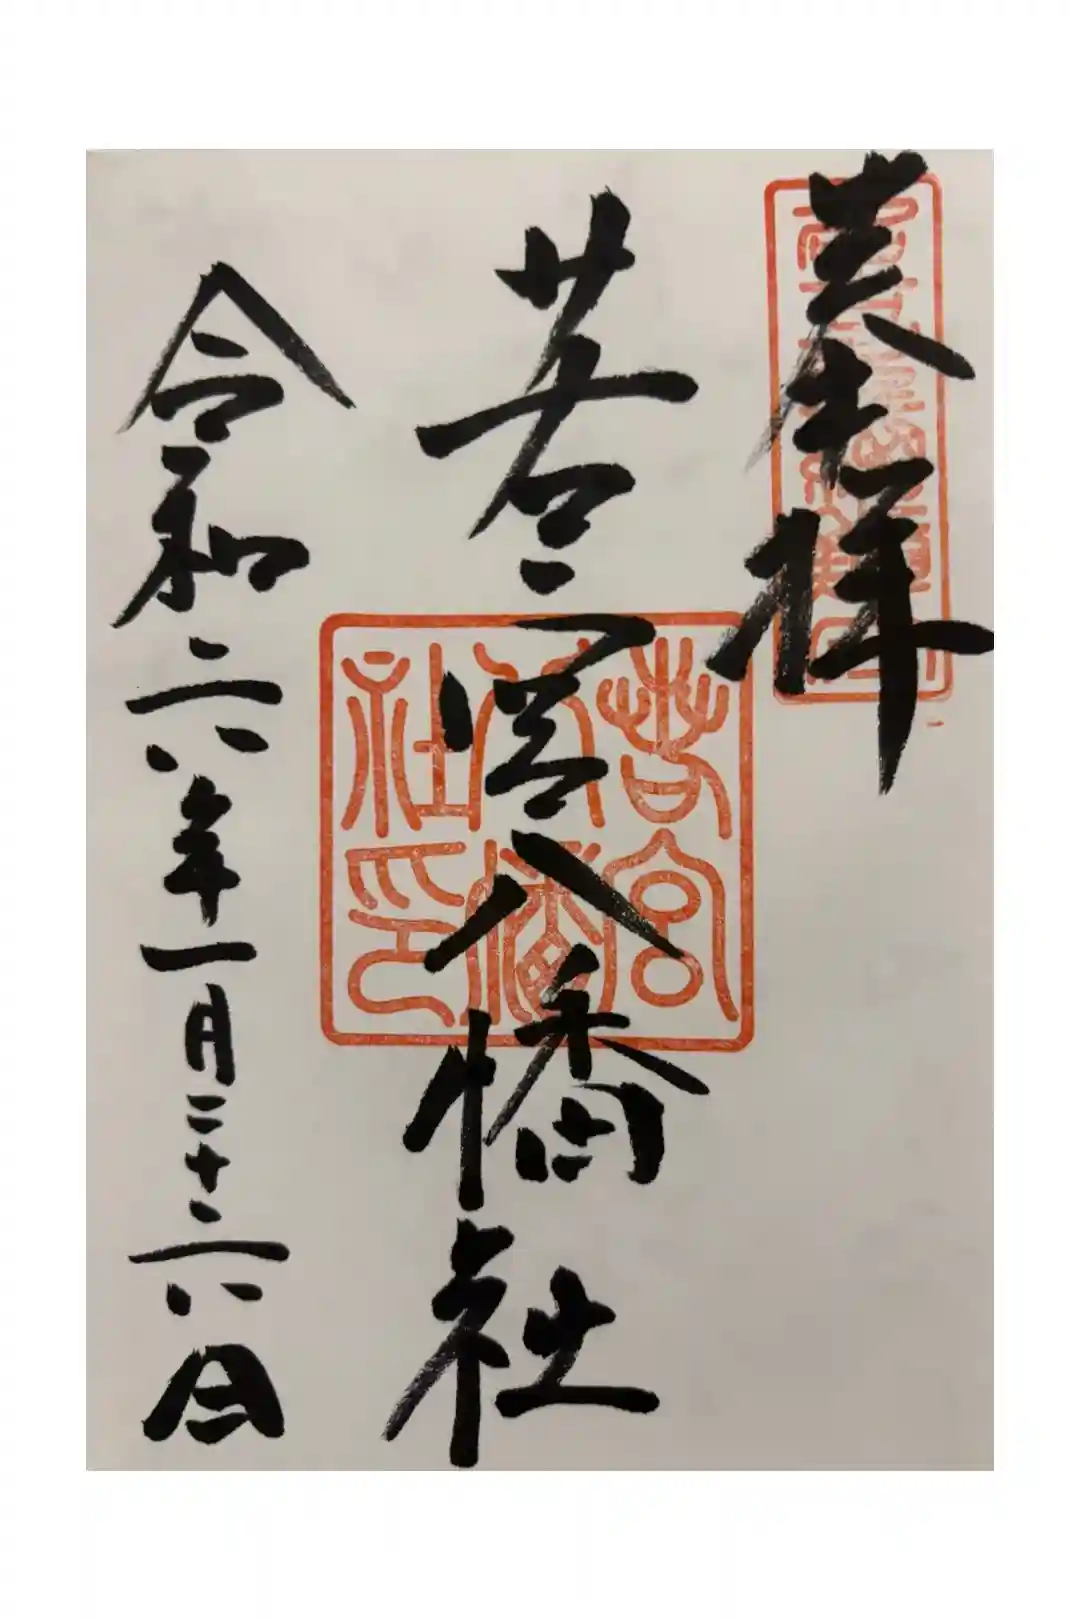 奉拝
若宮八幡社
令和六年一月二十六日
若宮八幡社印